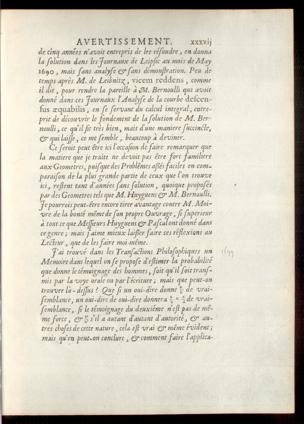 AVERTISSEMENT. xxxvij
de cinq années n'avoit entrepris de les résoudre, en donna
la solution dans les Journaux de Leipsic au mois de May
1690, mais sans analyse & sans démonstration. Peu de
temps après M. de Leibnitz, vicem reddens, comme
il dit, pour rendre la pareille à M. Bernoulli qui avoit
donné dans ces Journaux l'Analyse de la courbe descen-
sus æquabilis, en se servant du calcul integral, entre-
prit de découvrir le fondement de la solution de M. Ber-
noulli, ce qu'il fit très bien, mais d'une maniere succincte,
& qui laisse, ce me semble, beaucoup à deviner.
Ce seroit peut être ici l'occasion de faire remarquer que
la matiere que je traite ne devoit pas être fort familiere
aux Geometres, puisque des Problèmes assés faciles en com-
paraison de la plus grande partie de ceux que l'on trouve
ici, restent tant d'années sans solution, quoique proposés
par des Geometres tels que M. Huyghens & M. Bernoulli.
Je pourrois peut-être encore tirer avantage contre M. Moi-
vre de la bonté même de son propre Ouvrage, si superieur
à tout ce que Messieurs Huyghens & Pascal ont donné dans
ce genre; mais j'aime mieux laisser faire ces réflexions au
Lecteur, que de les faire moi-même.
J'ai trouvé dans les Transactions Philosophiques un
Memoire dans lequel on se propose d'estimer la probabilité
que donne le témoignage des hommes, soit qu'il soit trans-
mis par la voye orale ou par l'écriture; mais que peut-on
trouver là-dessus? Que si un oui-dire donne de vrai-
semblance, un oui-dire de oui-dire donnera de vrai-
semblance, si le témoignage du deuxième n'est pas de mê-
me force, & s'il a autant d'autorité, & au-
tres choses de cette nature, cela est vrai & même évident;
mais qu'en peut-on conclure, & comment faire l'applica-